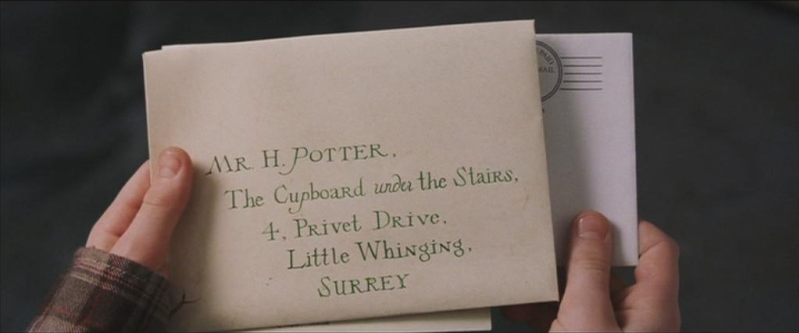 Mr H. Potter,
The Cupboard under the Stairs,
4, Privet Drive,
Little Whinging,
SURREY
MAIL